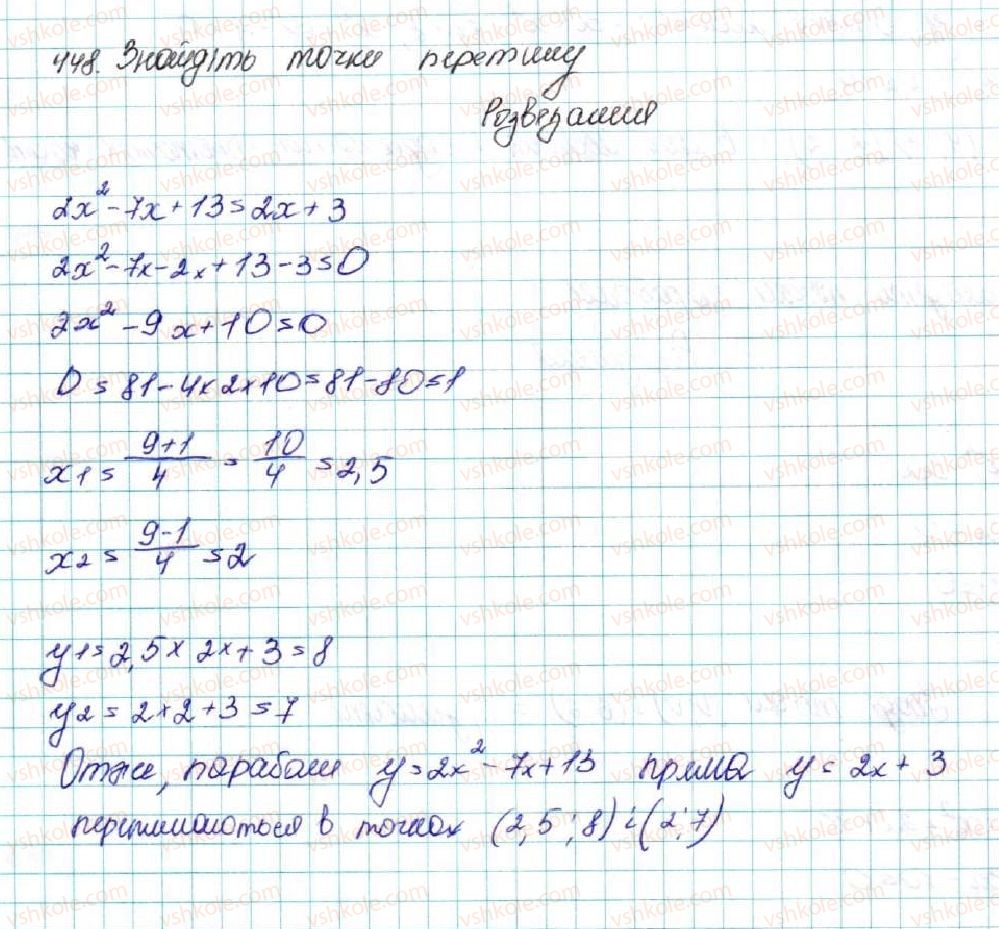 448. Знайдіть точки перетину
Розвезання
2x² - 7x + 13 = 2x + 3
2x² - 7x - 2x + 13 - 3 = 0
2x² - 9x + 10 = 0
D = 81 - 4 x 2 x 10 = 81 - 80 = 1
x1 = 9+1/4 = 10/4 = 2,5
x2 = 9-1/4 = 2
y1 = 2,5 x 2x + 3 = 8
y2 = 2 x 2 + 3 = 7
Отже, параболи y = 2x² - 7x + 13 пряма y = 2x + 3
перетинаються в точках (2,5 ; 8) і (2; 7)
vshkole.com